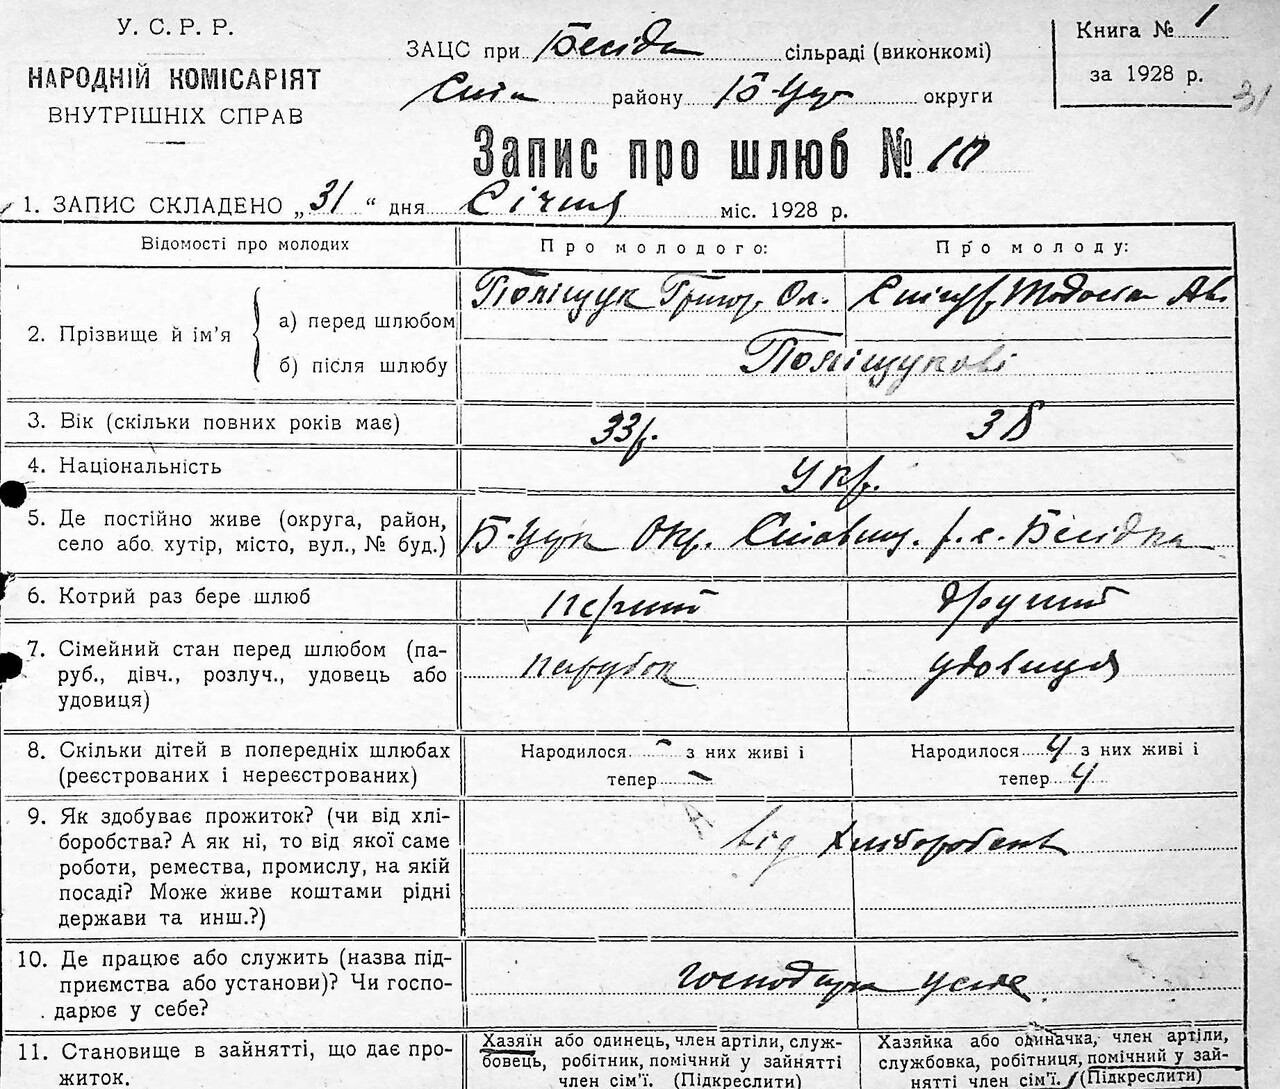 У. С. Р. Р.
НАРОДНІЙ КОМІСАРІЯТ
ВНУТРІШНІХ СПРАВ
ЗАЦС при Бесідк сільраді (виконкомі)
району Б-Црк округи
Книга № 1
за 1928 р.
31
Запис про шлюб № 10
1. ЗАПИС СКЛАДЕНО „31“ дня Січня міс. 1928 р.
Відомості про молодих
Про молодого:
Про молоду:
2. Прізвище й ім’я
а) перед шлюбом
Поліщук Григор. Ол.
Тодоська Ав.
б) після шлюбу
Поліщукові
3. Вік (скільки повних років має)
33 р.
38
4. Національність
Укр.
5. Де постійно живе (округа, район,
село або хутір, місто, вул., № буд.)
Б-Црк Окр. Ставищ. р. с. Бесідка
6. Котрий раз бере шлюб
перший
другий
7. Сімейний стан перед шлюбом (па-
руб., дівч., розлуч., удовець або
удовиця)
парубок
удовиця
8. Скільки дітей в попередніх шлюбах
(реєстрованих і нереєстрованих)
Народилося - з них живі і
тепер -
Народилося 4 з них живі і
тепер 4
9. Як здобуває прожиток? (чи від хлі-
боробства? А як ні, то від якої саме
роботи, ремества, промислу, на якій
посаді? Може живе коштами рідні
держави та инш.?)
від хліборобств
10. Де працює або служить (назва під-
приємства або установи)? Чи госпо-
дарює у себе?
у себе
11. Становище в зайнятті, що дає про-
житок.
Хазяїн або одинець, член артіли, служ-
бовець, робітник, помічний у зайнятті
член сім’ї. (Підкреслити)
Хазяйка або одиначка, член артіли,
службовка, робітниця, помічний у зай-
нятті член сім’ї. (Підкреслити)